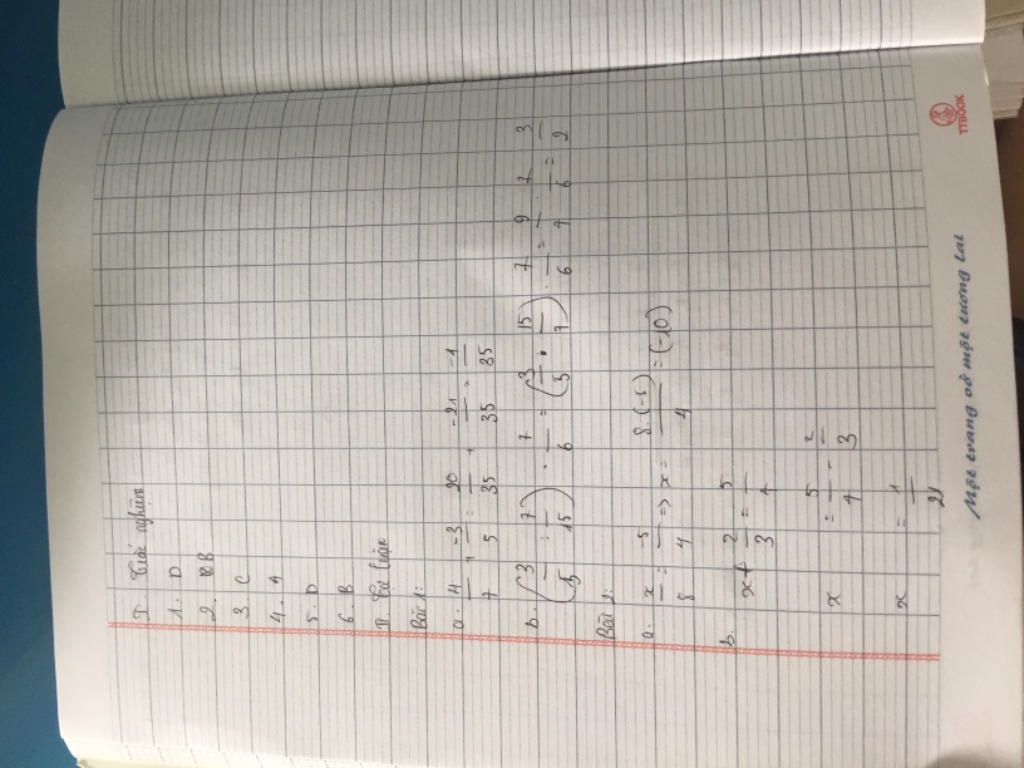 I. Trắc nghiệm
1. D
2. B
3. C
4. A
5. D
6. B
II. Tự luận
Bài 1:
a. 4/7 + -3/5 = 20/35 + -21/35 = -1/35
b. (3/5 : 7/15) . 7/6 = (3/5 . 15/7) . 7/6 = 9/7 . 7/6 = 3/2
Bài 2:
a. x/8 = -5/4 => x = 8.(-5)/4 = (-10)
b. x + 2/3 = 5/7
x = 5/7 - 2/3
x = 1/21
Một trang vở một tương lai
TTBOOK